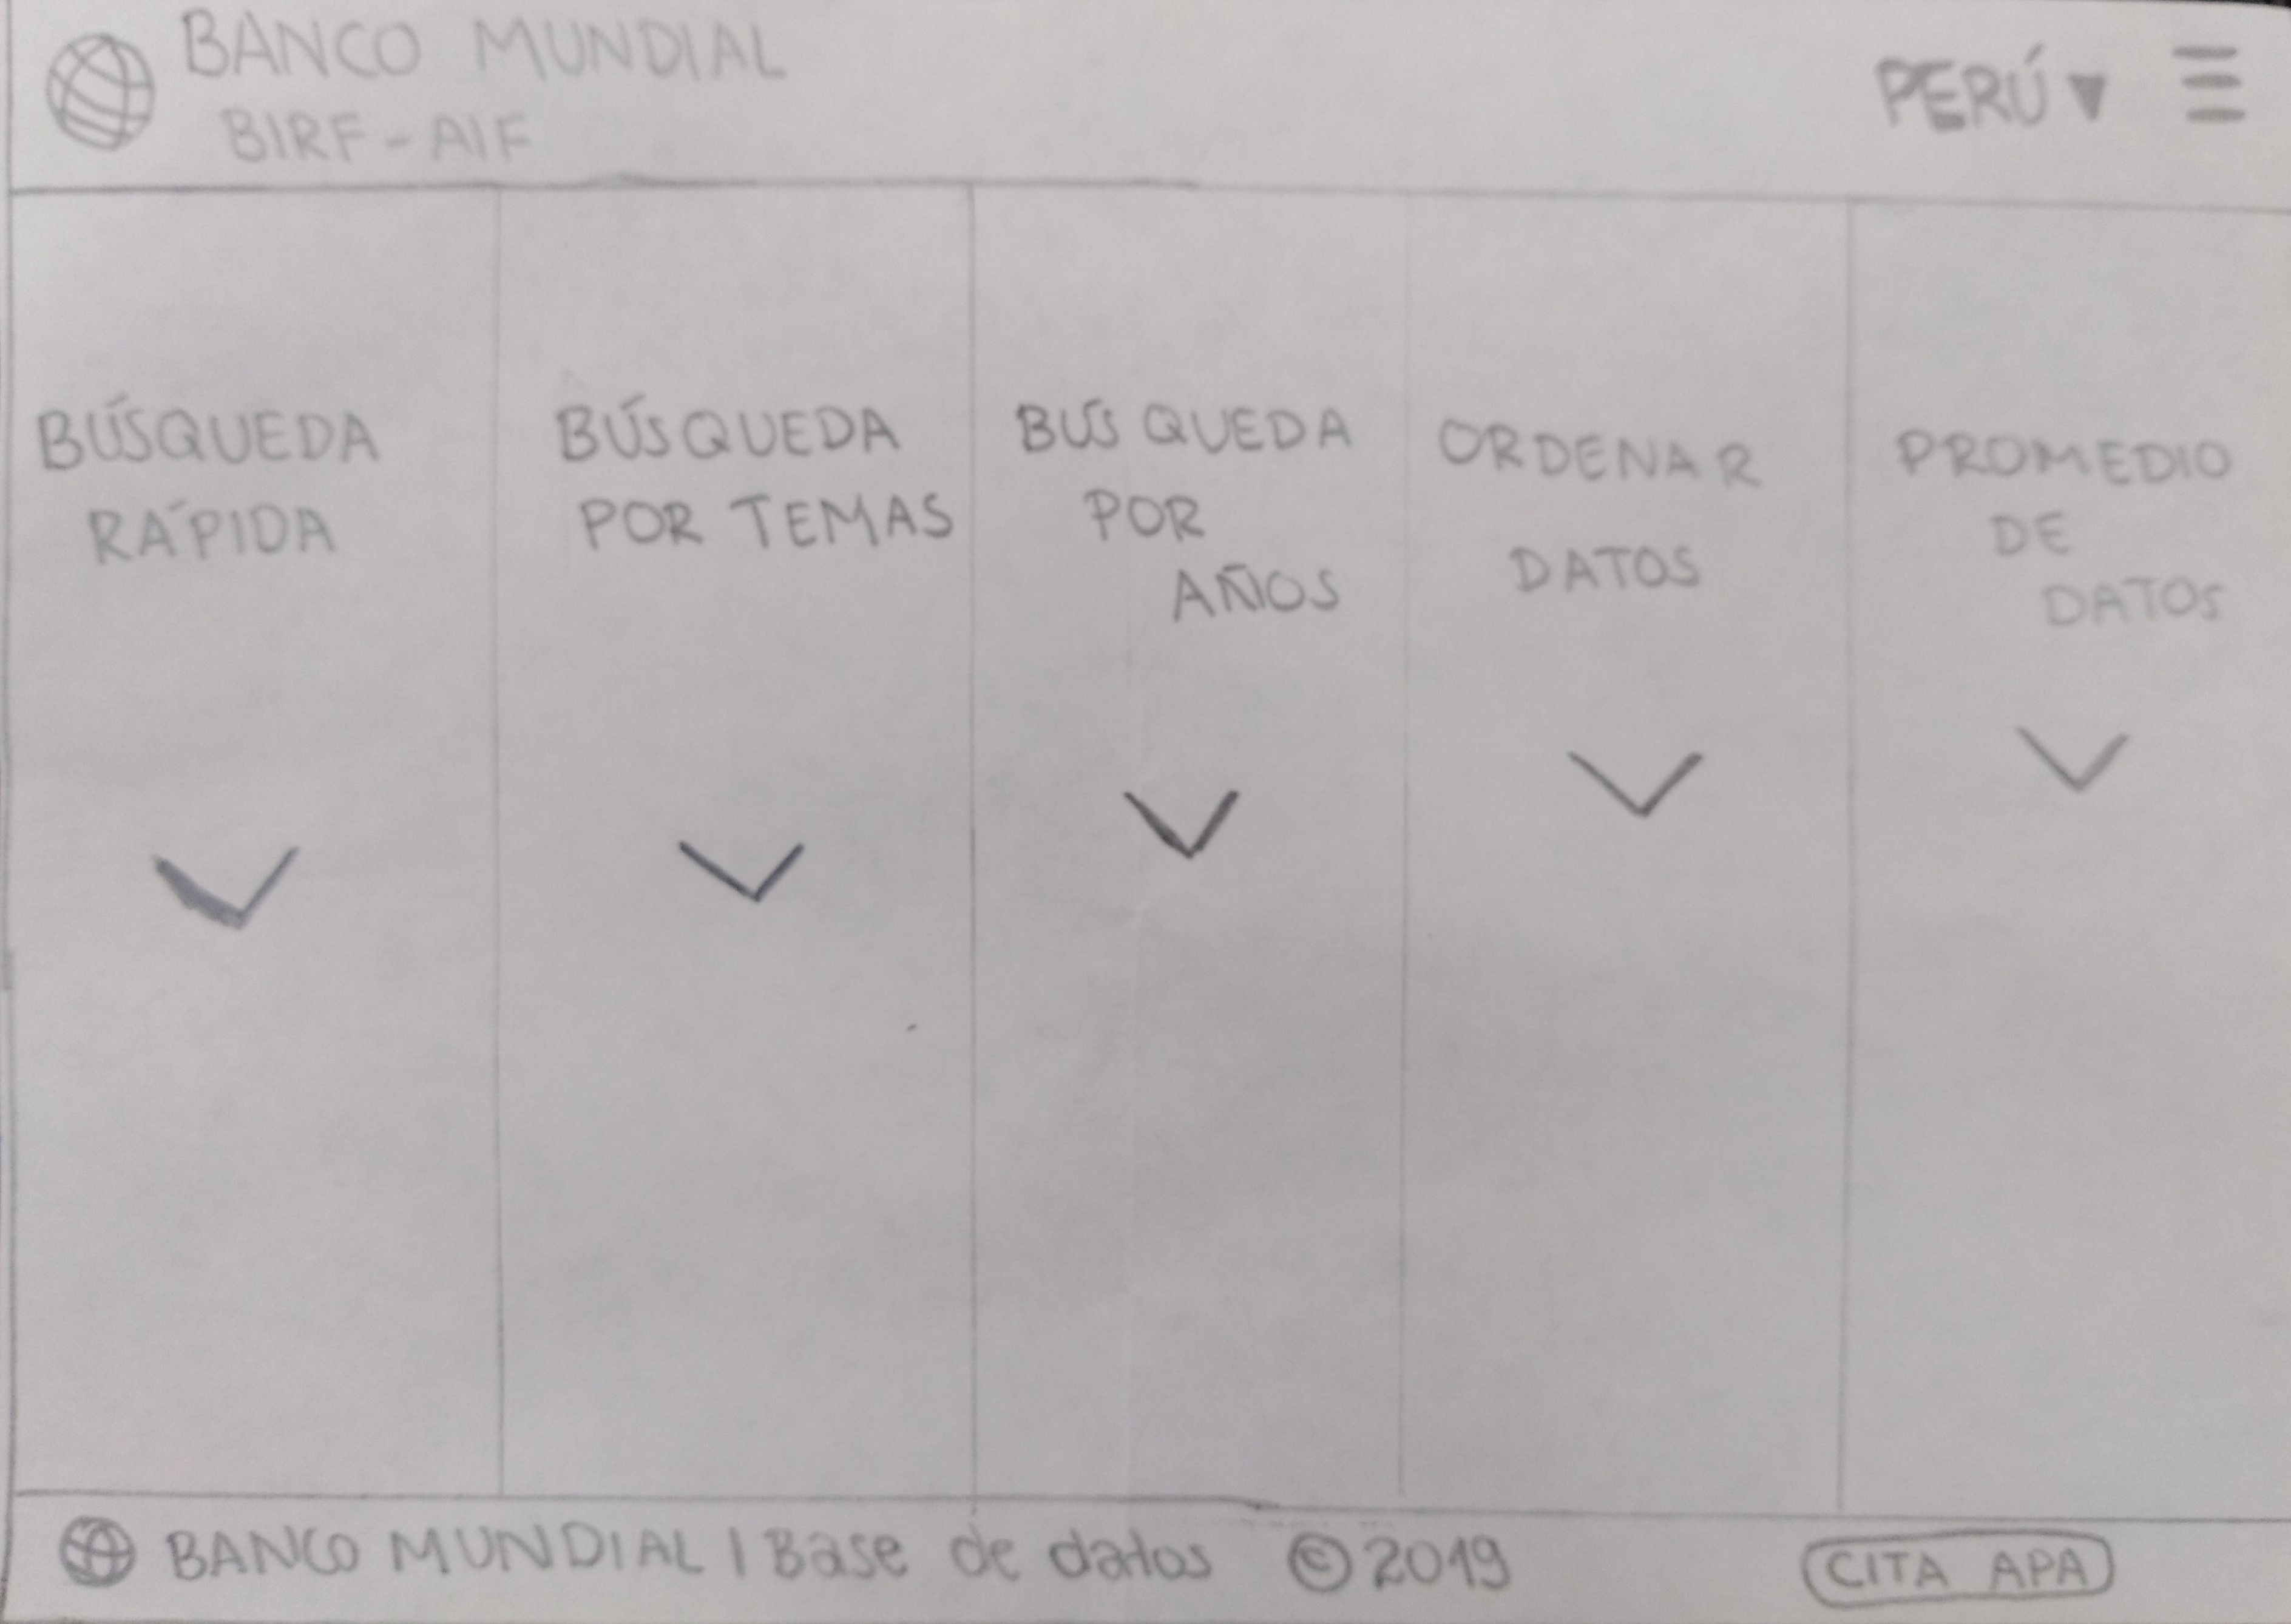 BANCO MUNDIAL
BIRF-AIF
PERÚ
BÚSQUEDA
RÁPIDA
BÚSQUEDA
POR TEMAS
BÚSQUEDA
POR
AÑOS
ORDENAR
DATOS
PROMEDIO
DE
DATOS
BANCO MUNDIAL | Base de datos © 2019
CITA APA